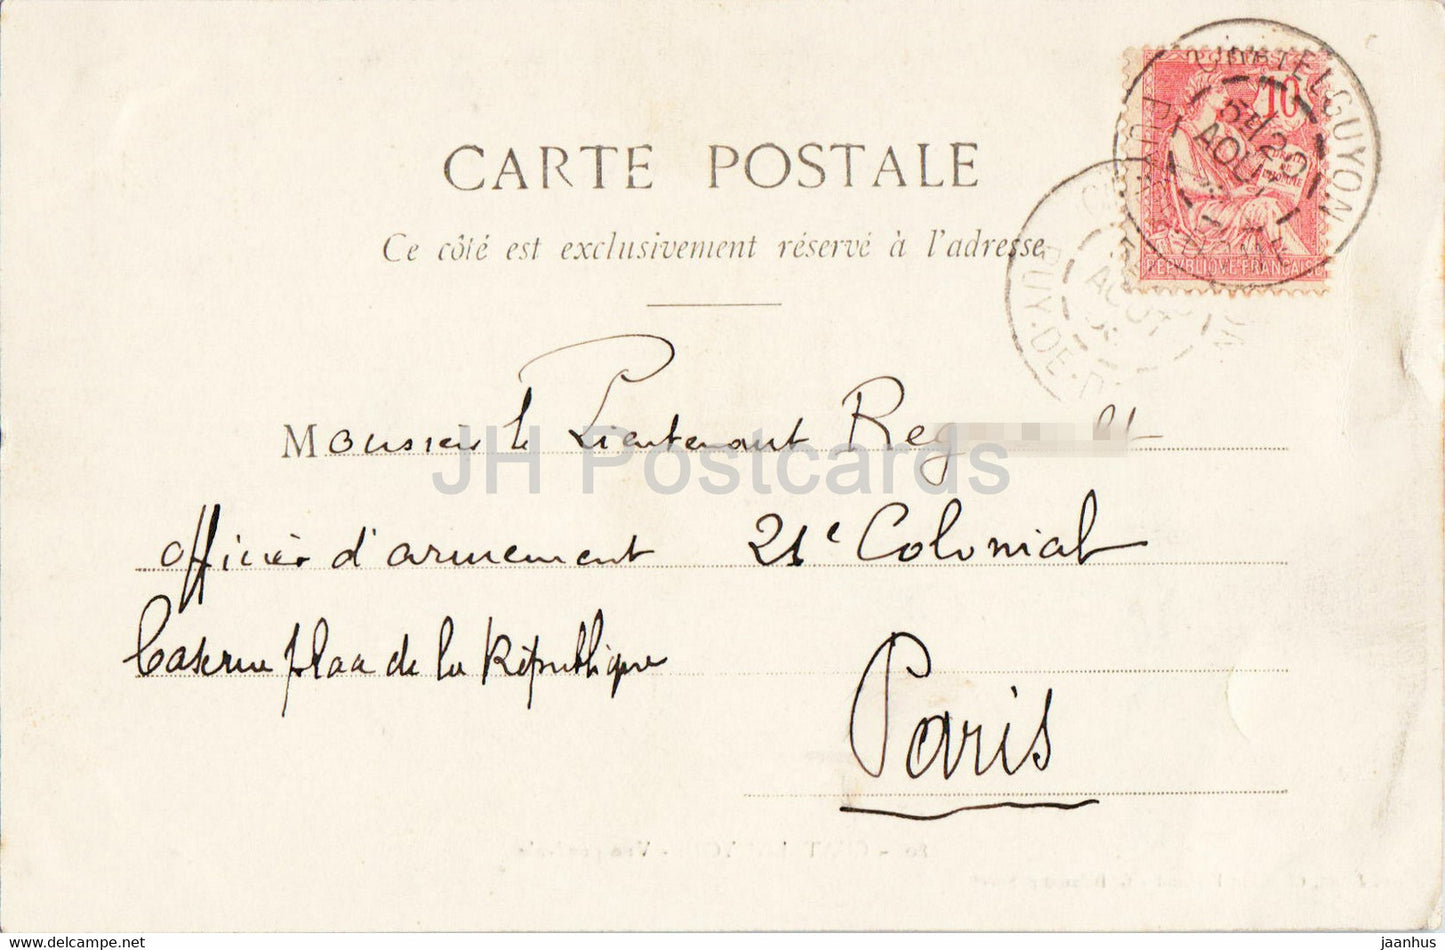 CARTE POSTALE
Ce côté est exclusivement réservé à l'adresse
POSTES
10
REPVBLIQVE FRANÇAISE
CHATEL GUYON
AOUT
PUY-DE-DOME
PUY-DE-D
AOUT
Monsieur le Lieutenant Reg
officier d'armement 21e Colonial
Caserne place de la République
Paris
JH Postcards
www.hippostcard.com/store/jaanhus-cards
jaanhus